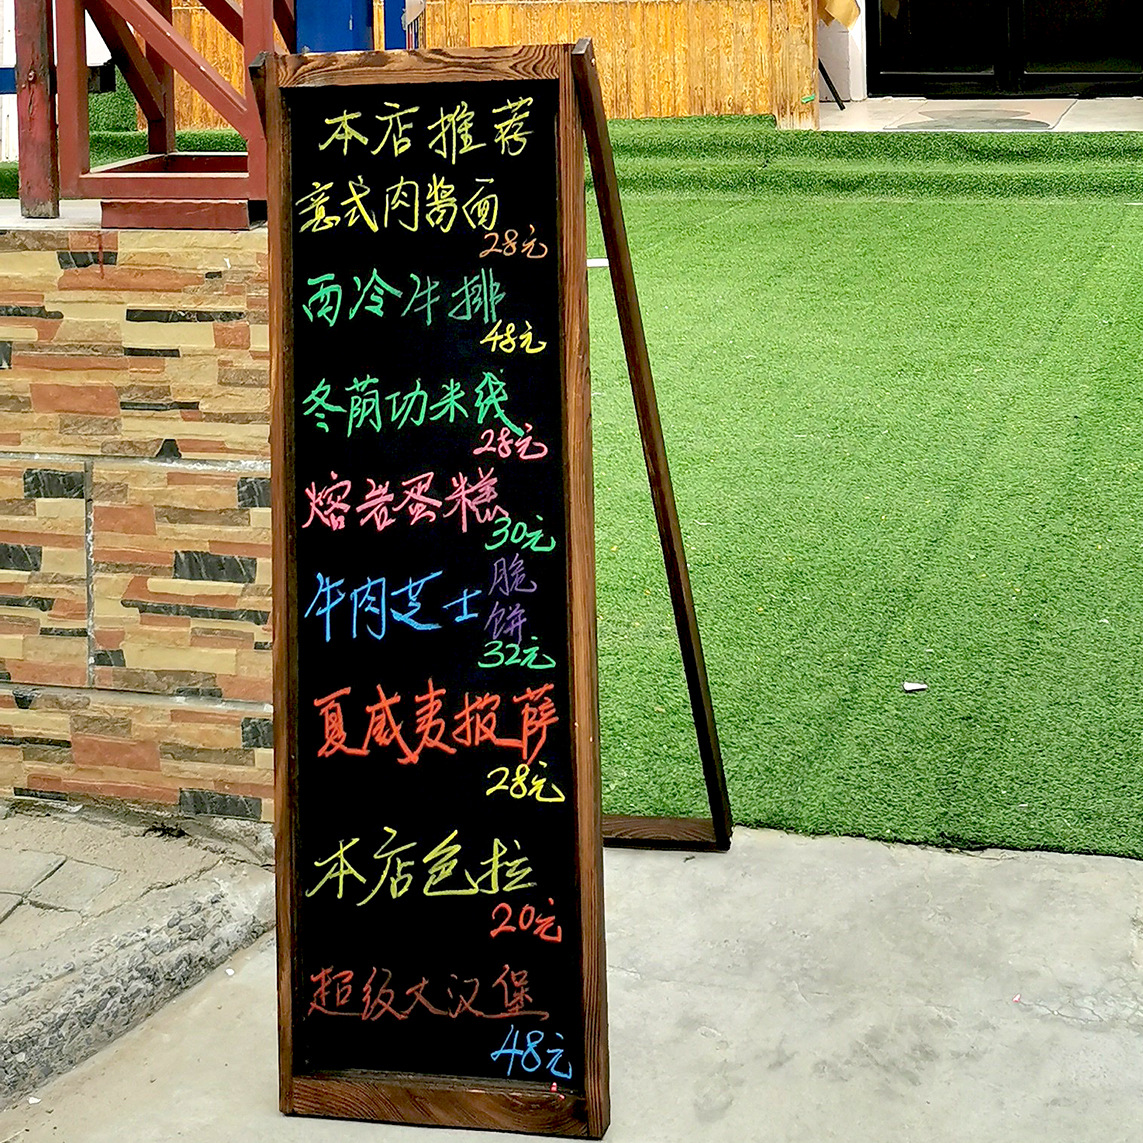 本店推荐
意式肉酱面
28元
西冷牛排
48元
冬荫功米线
28元
熔岩蛋糕
30元
牛肉芝士脆饼
32元
夏威夷披萨
28元
本店色拉
20元
超级大汉堡
48元